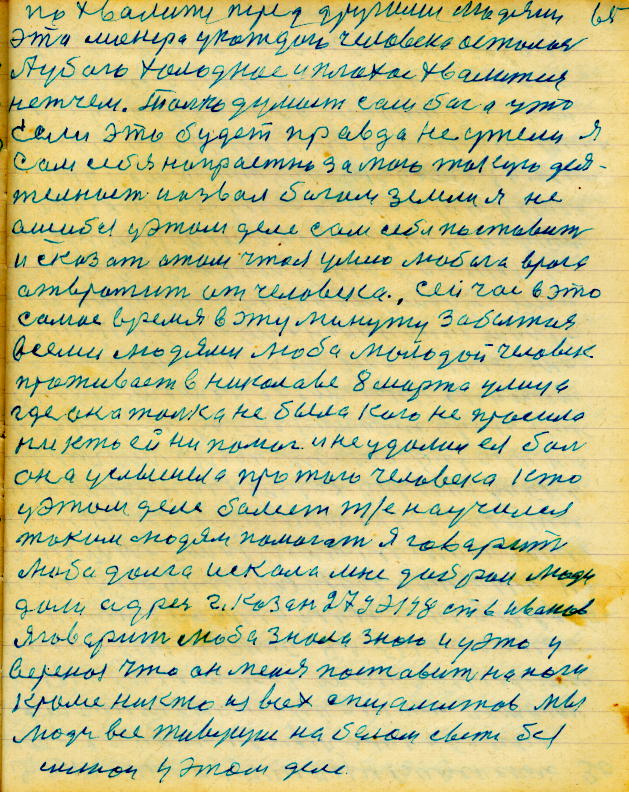 похвалит перед другими людями 65
эта манера укаждого человека осталая
Аубого холодное иплохое хвалится
нетчем. Толко думает сам бог а ужо
если это будет правда не ужели я
сам себя напрастно за мою такую дея-
телност назвал богам земли я не
ошибся уэтом деле сам себя поставит
и сказат этом чтоя умею любога врага
атвратит от человека., сейчас в это
самое время вэту минуту забытая
всеми людями люба молодой человек
проживает в николаве 8 марта улица
где она толка не была кого не просила
никто ей ни помог. и не удалил ея бол
она услышела про того человека кто
уэтом деле болеет т/е научился
таким людям помогат я говарит
люба долга искала мне доброи люди
дали адрея г. Казан 27 уэ 148 ст 6 иванов
я говарит люба знала знаю и уэто у
верена что он меня поставит на ноги
Кроме никто из всех специалистов мы
люди все живущие на белом свети без
силнои уэтом деле.